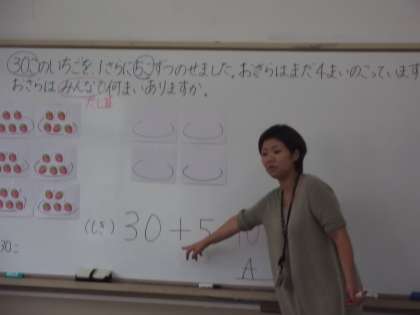 30このいちごを、1さらに5こずつのせました。おさらはまだ4まいのこっています
おさらはみんなで何まいありますか。
たし算
(しき) 30+5
10
A
30こ